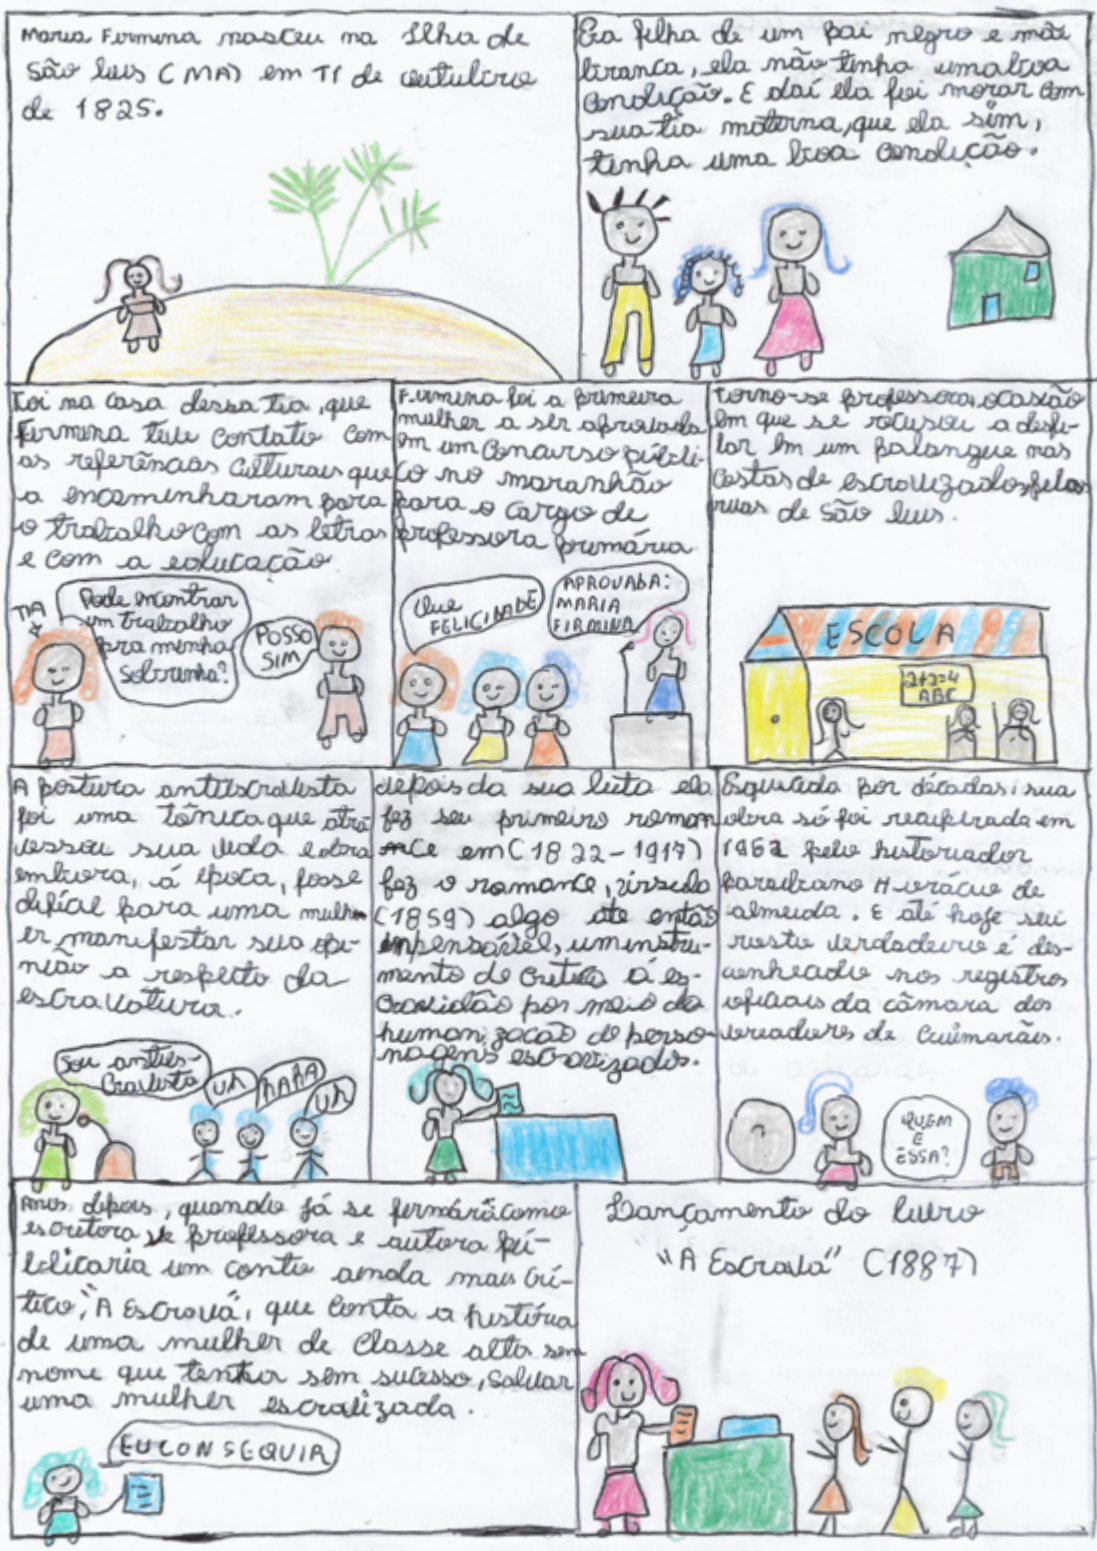 Maria Firmina nasceu na Ilha de
São Luis (MA) em 11 de outubro
de 1825.
Era filha de um pai negro e mãe
branca, ela não tinha uma boa
condição. E daí ela foi morar com
sua tia materna, que ela sim,
tenha uma boa condição.
Foi na casa dessa tia, que
Firmina teve contato com
as referências culturais que
a encaminharam para
o trabalho com as letras
e com a educação
TIA
Pode encontrar
um trabalho
pra minha
sobrinha?
POSSO
SIM
Firmina foi a primeira
mulher a ser aprovada
em um concurso públi
co no maranhão
para o cargo de
professora primária
Que
FELICIDADE
APROVADA:
MARIA
FIRMINA
torno-se professora, ocasião
em que se recusou a desfi-
lar em um palanque nas
costas de escravizados pelas
ruas de São luis.
ESCOLA
2+2=4
ABC
A postura antiescravista
foi uma tônica que atra
vessou sua vida e obra
embora, á época, fosse
difícal para uma mulh
er manifestar sua opi-
nião a respeito da
escravatura.
Sou anties-
cravista
UA
HAHA
UA
depois da sua luta ela
fez seu primeiro roman
nce em (1822-1917)
fez o romance, úrsula
(1859) algo ate então
inpensável, um instru-
mento de critica á es-
cravidão por meio da
humanização de perso-
nagens escravizados.
Esquecida por décadas, sua
obra só foi recuperada em
1962 pelo historiador
paraibano Horácio de
almeida. E até hoje seu
rosto verdadeiro é des-
conhecido nos registros
oficiais da câmara dos
vereadores de Guimarães.
?
QUEM
E
ESSA?
Anos depois, quando já se firmára como
escritora e professora e autora pú-
blicaria um conto ainda mais crí-
tico, "A Escrava", que conta a história
de uma mulher de classe alta sem
nome que tenta sem sucesso, salvar
uma mulher escravizada.
EU CONSEQUIR
Lançamento do livro
"A Escrava" (1887)